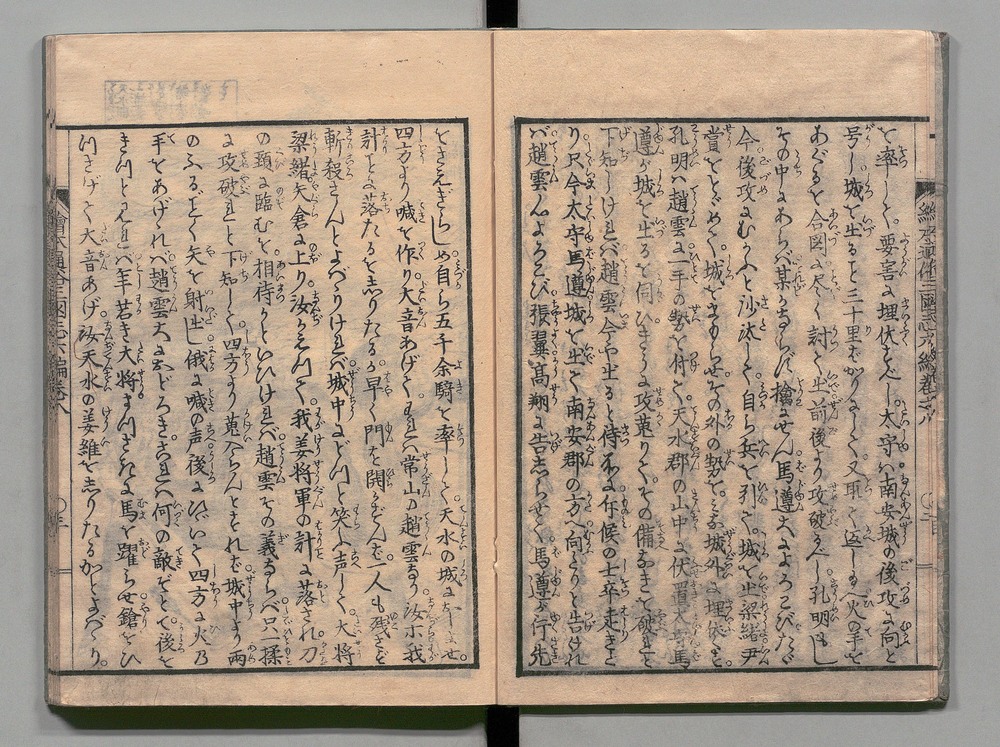 を率して。要害に埋伏すべし。太守は南安城の後攻に向と
号し。城を出ること三十里ばかりにして。又取て返し。火の手を
あぐるを合図に尽く討て出。前後より攻破るべし。孔明もし
その中にあらば。某かならず擒にせん。馬遵大によろこび。たゞ
今後攻にむかふと沙汰して。自ら兵を引て。城を出。梁緒尹
賞をとゞめて。城をまもらせ。その外の勢を。みな城外に埋伏
孔明は趙雲に一手の勢を付て。天水郡の山中に伏置。太守馬
遵が城を出るを伺ひ。すぐに攻蒐りて。その備なきを破れと
下知しければ。趙雲今や出ると待ところに。斥候の士卒走きた
り。只今太守馬遵城を出て。南安郡の方へ向へりと告けれ
ば。趙雲心によろこび。張翼高翔に告しらせて。馬遵が行先
をさえぎらしめ。自ら五千余騎を率して。天水の城におしよせ。
四方より喊を作り。大音あげて。われは常山の趙雲なり。汝等我
計に落たるをしりたるか。早く門を開かずんば。一人も残さず
斬殺さんとよばゝりければ。城中にどつと笑ふ声して。大将
梁緒矢倉に上り。汝かへつて。我姜将軍の計に落され。刀
の頸に臨むを。相待かといひければ。趙雲その義ならば。只一揉
に攻破れと下知して。四方より蒐入らんとすれば。城中より雨
のふるごとく矢を射出し。俄に喊の声後にひゞいて。四方に火乃
手をあげゝれば。趙雲大におどろき。これは何の敵ぞとて。後を
きつと見れば。年若き大将まつさきに馬を躍らせ。鎗をひ
つさげて大音あげ。汝天水の姜維をしりたるかとよべり。